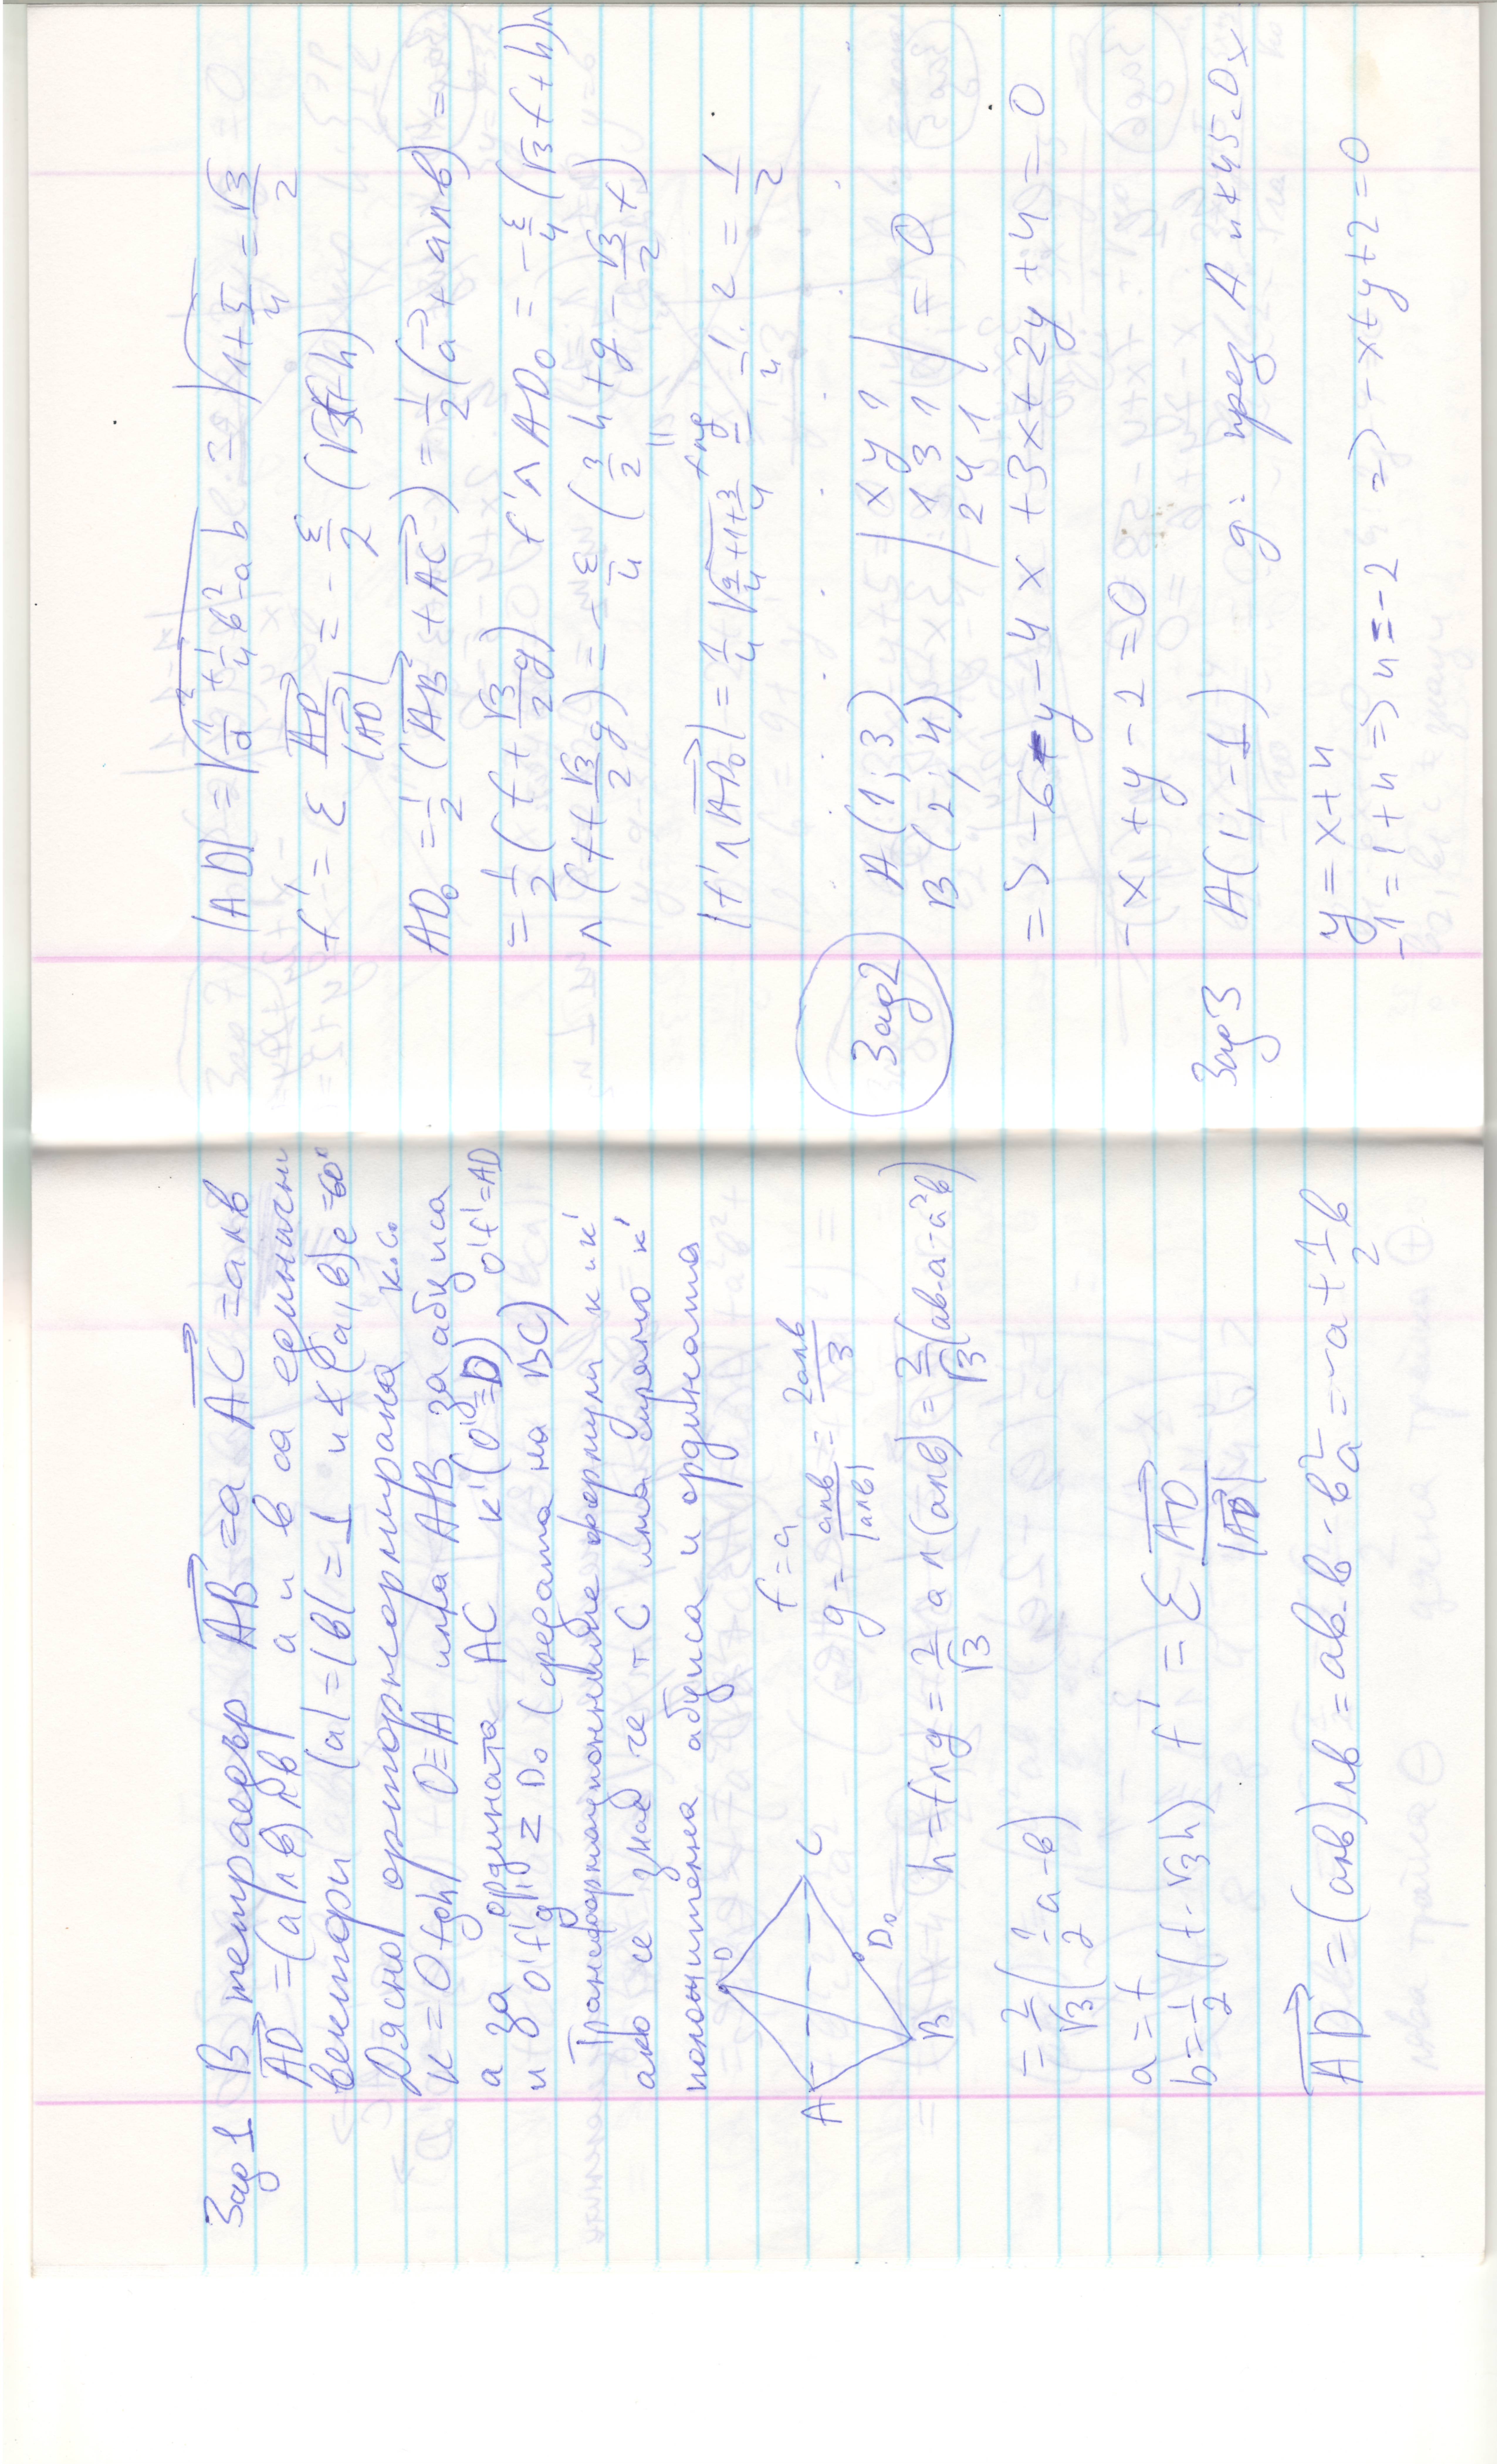 Зад 1 В тетраедър AB = a AC = a∧b
AD = (a∧b)∧b a и b са единични
вектори |a| = |b| = 1 и ∢(a, b) е = 60°
Дясно ортонормирана к.с.
K = Ofgh O≡A има AB за абциса
а за ордината AC K' (O'≡D) O'f' = AD
и O'f'g' Z D₀ (средата на BC)
Трансформационните формули K и K'
ако се знае че т C има спрямо K'
положителна абциса и ордината
A B C D D₀
f = a
g = a∧b / |a∧b| = 2a∧b / 3
h = f∧g = 2/√3 a∧(a∧b) = 2/√3 (ab.a - a²b)
= 2/√3 (1/2 a - b)
a = f
b = 1/2 (f - √3h) f' = ε AD / |AD|
AD = (a∧b)∧b = ab.b - b²a = -a + 1/2 b
|AD| = √(a² + 1/4 b² - ab) = √(1+5/4) = √3/2
f' = ε AD / |AD| = - ε/2 (√3f+h)
AD₀ = 1/2 (AB + AC) = 1/2 (a + a∧b) =
= 1/2 (f + √3/2 g) f'∧AD₀ = - ε/4 (√3 f + h)∧
∧ (f + √3/2 g) = - ε/4 (3/2 h + g - √3/2 f)
|f'∧AD₀| = 1/4 √(9/4 + 1 + 3/4) = 1/4 . 2 = 1/2
Зад 2 A (1; 3) | x y 1 |
B (2; 4) | 1 3 1 | = 0
| 2 4 1 |
=> -6 - y - 4x + 3x + 2y + 4 = 0
-x + y - 2 = 0
Зад 3 A(1; -1) g: през A и ∢ 45° Ox
y = x + n
-1 = 1 + n => n = -2 => -x + y + 2 = 0